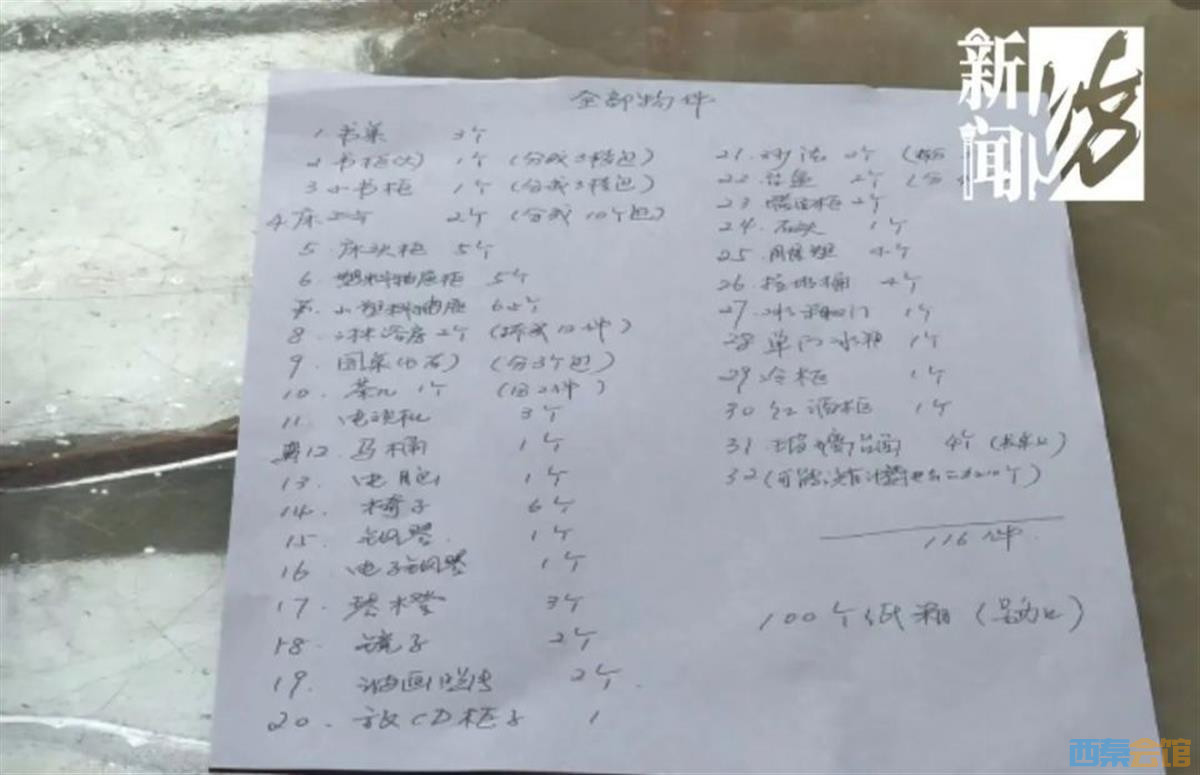 全部物件
1 书桌 3个
2 书柜(大) 1个 (分成3樘包)
3 小书柜 1个 (分成3樘包)
4 床 2个 (分成10个包)
5 床头柜 5个
6 塑料抽屉柜 5个
小塑料抽屉 6个
8 淋浴房 2个 (拆成12件)
9 圆桌(石) (分3个包)
10. 茶几 1个 (分2件)
11. 电视机 3个
12. 马桶 1个
13. 电脑 1个
14. 椅子 6个
15. 钢琴. 1个
16 电子钢琴 1个
17. 琴凳 3个
18. 镜子 2个
19. 油画 2个.
20. 放CD柜子 1
21. 沙发 2个
22 2个
23 柜 2个
24. 石头 1个
25
26 垃圾桶 4个
27 冰箱 门 1个
28 单门冰箱 1个
29 冷柜 1个
30 红酒柜 1个
31 玻璃台面 4个
32
116件.
100个纸箱
新闻坊
西秦会馆